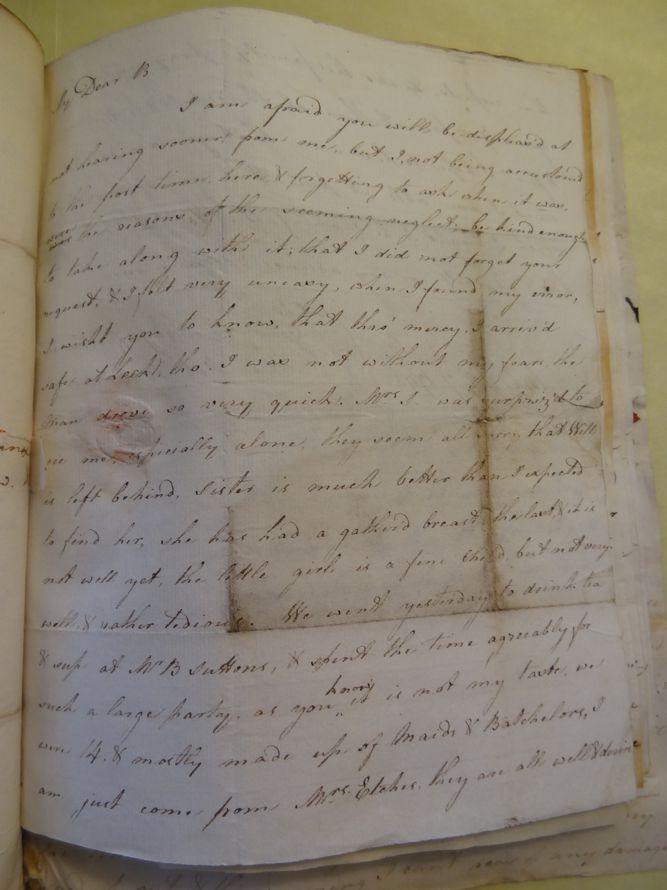 My Dear B
I am afraid you will be displeas'd at
not hearing sooner from me, but I not being accustom'd
to the post time here & forgetting to ask when it was,
were the reasons of the seeming neglect, be kind enough
to take along with it, that I did not forget your
request, & I felt very uneasy, when I found my error,
I wish't you to know, that thro' mercy, I arriv'd
safe at Leek, tho' I was not without my fears, the
Man drove so very quick. Mrs. I. was surpriz'd to
see me, especially alone, they seem all sorry that Will
is left behind, Sister is much better than I expected
to find her, she has had a gather'd breast, the last, & it is
not well yet, the little girl is a fine Child, but not very
well & rather tedious. We went yesterday to drink tea
& sup at Mr. B Suttons, & spent the time agreeably for
such a large party, as you know it is not my taste, we
were 14. & mostly made up of Maids & Batchelors, I
am just come from Mrs. Etches, they are all well & desire